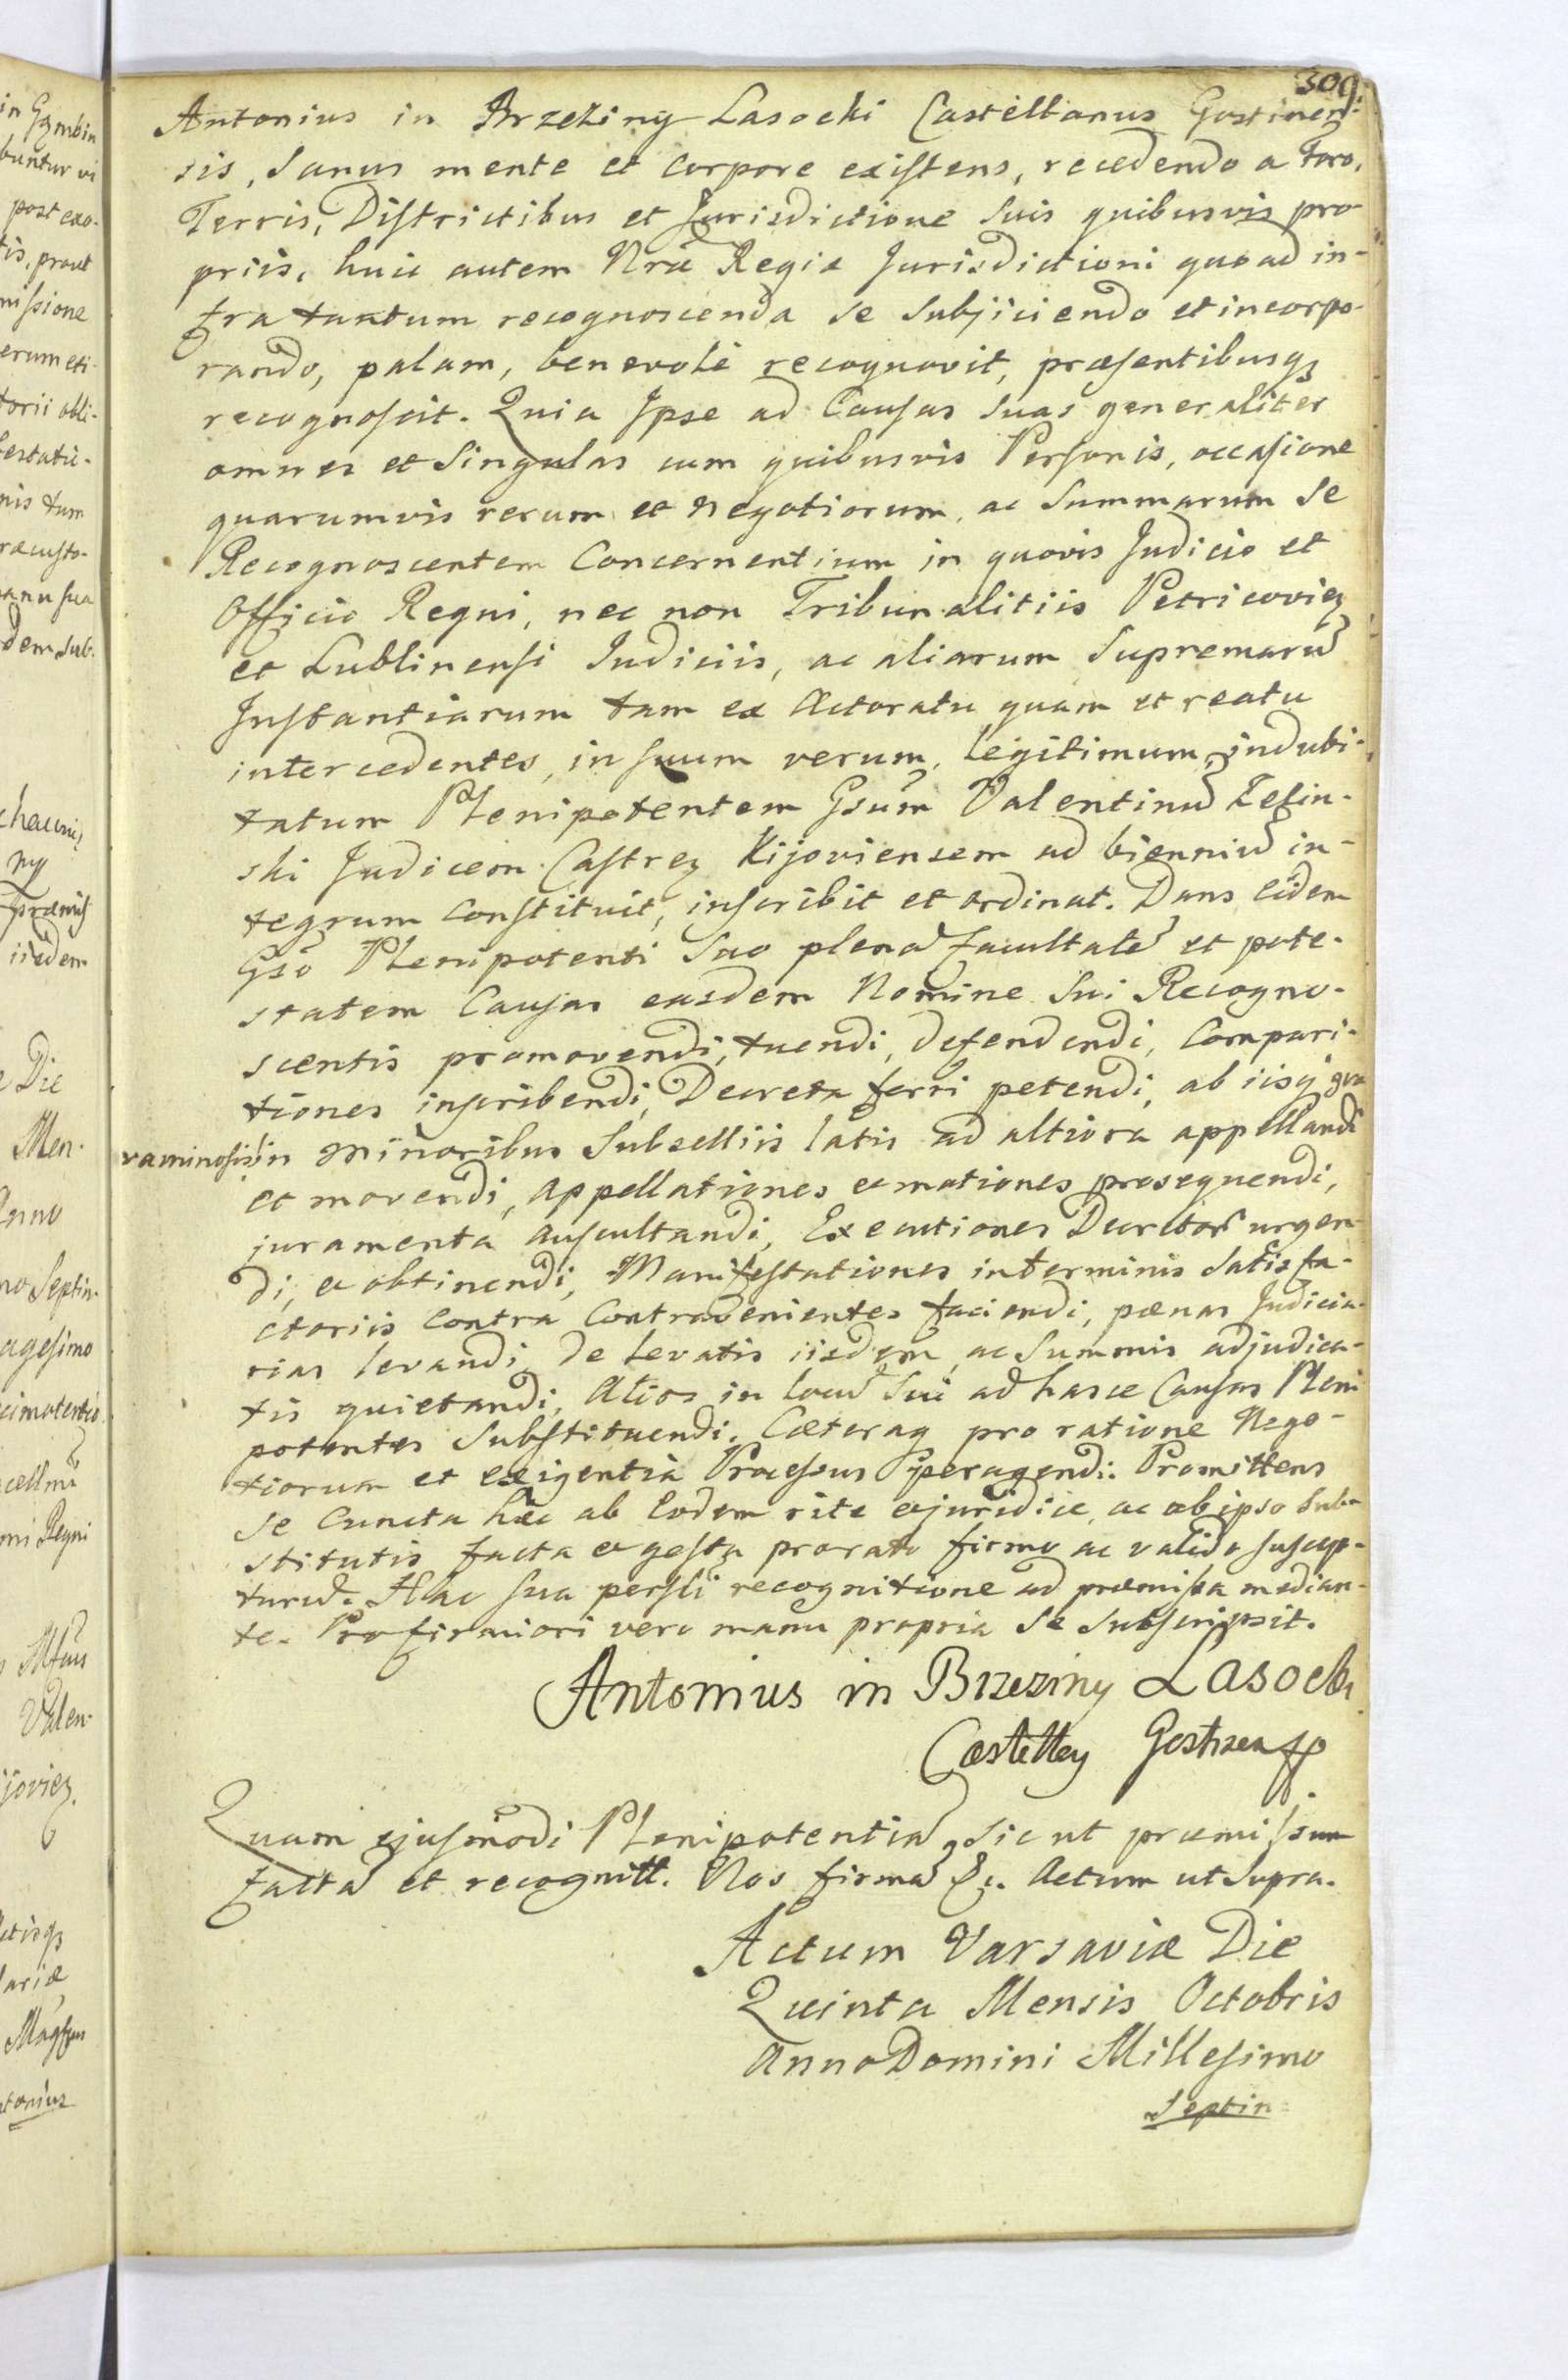 309.
Antonius in Brzeziny Lasocki Castellanus Gostinen-
sis, Sanus mente et Corpore existens, recedendo a Foro,
Terris, Districtibus et Jurisdictione Suis quibusvis pro-
priis, huic autem Nrae Regiae Jurisdictioni quoad in-
fra tantum recognoscenda se Subjiciendo et incorpo-
rando, palam, benevole recognovit, praesentibusq3
recognoscit. Quia Ipse ad Causas Suas generaliter
omnes et Singulas cum quibusvis Personis, occasione
quarumvis rerum et Negotiorum, ac Summarum Se
Recognoscentem Concernentium in quovis Judicio et
Officio Regni, nec non Tribunalitiis Petricovien
et Lublinensi Judiciis, ac aliarum Supremarũ
Instantiarum tam ex Actoratu quam et reatu
intercedentes, in Suum verum, legitimum, indubi-
tatum Plenipotentem Gsum Valentinũ
ski Judicem Castren Kijoviensem ad bienniũ in-
tegrum Constituit, inscribit et ordinat. Dans eidem
Gso Plenipotenti Suo plenã facultatẽ et pote-
statem Causas easdem Nomine Sui Recogno-
scentis promovendi, tuendi, defendendi, Compari-
tiones inscribendi, Decreta ferri petendi, ab iisq gra
vaminosis in minoribus Subselliis latis ad altiora appellandi
et movendi, appellationes et motiones prosequendi,
juramenta auscultandi, Executiones Decretor urgen-
di, et obtinendi, Manifestationes in terminis Satisfa-
ctoriis Contra Contravenientes faciendi, paenas Judicia-
rias levandi, de levatis iisdem ac Summis adjudica-
tis quietandi, Alios in locũ Sui ad hasce Causas Pleni
potentes Substituendi. Caeteraq pro ratione Nego-
tiorum et exigentia Processus peragendi. Promittens
Se Cuncta haec ab Eodem rite et juridice, ac ab ipso Sub-
stitutis facta et gesta pro rato firmo ac valido suscep-
turũ. Hac Sua persli recognitione ad praemissa median-
te. Pro firmiori vero manu propria Se Subscripsit.
Antonius in Brzeziny Lasocki
Castellan Gostinen
Quam ejusmodi Plenipotentiã, Sic ut praemissum
factã et recognitt. Nos firmã &c. Actum ut Supra.
Actum Varsaviae Die
Quinta Mensis Octobris
Anno Domini Millesimo
Septin-